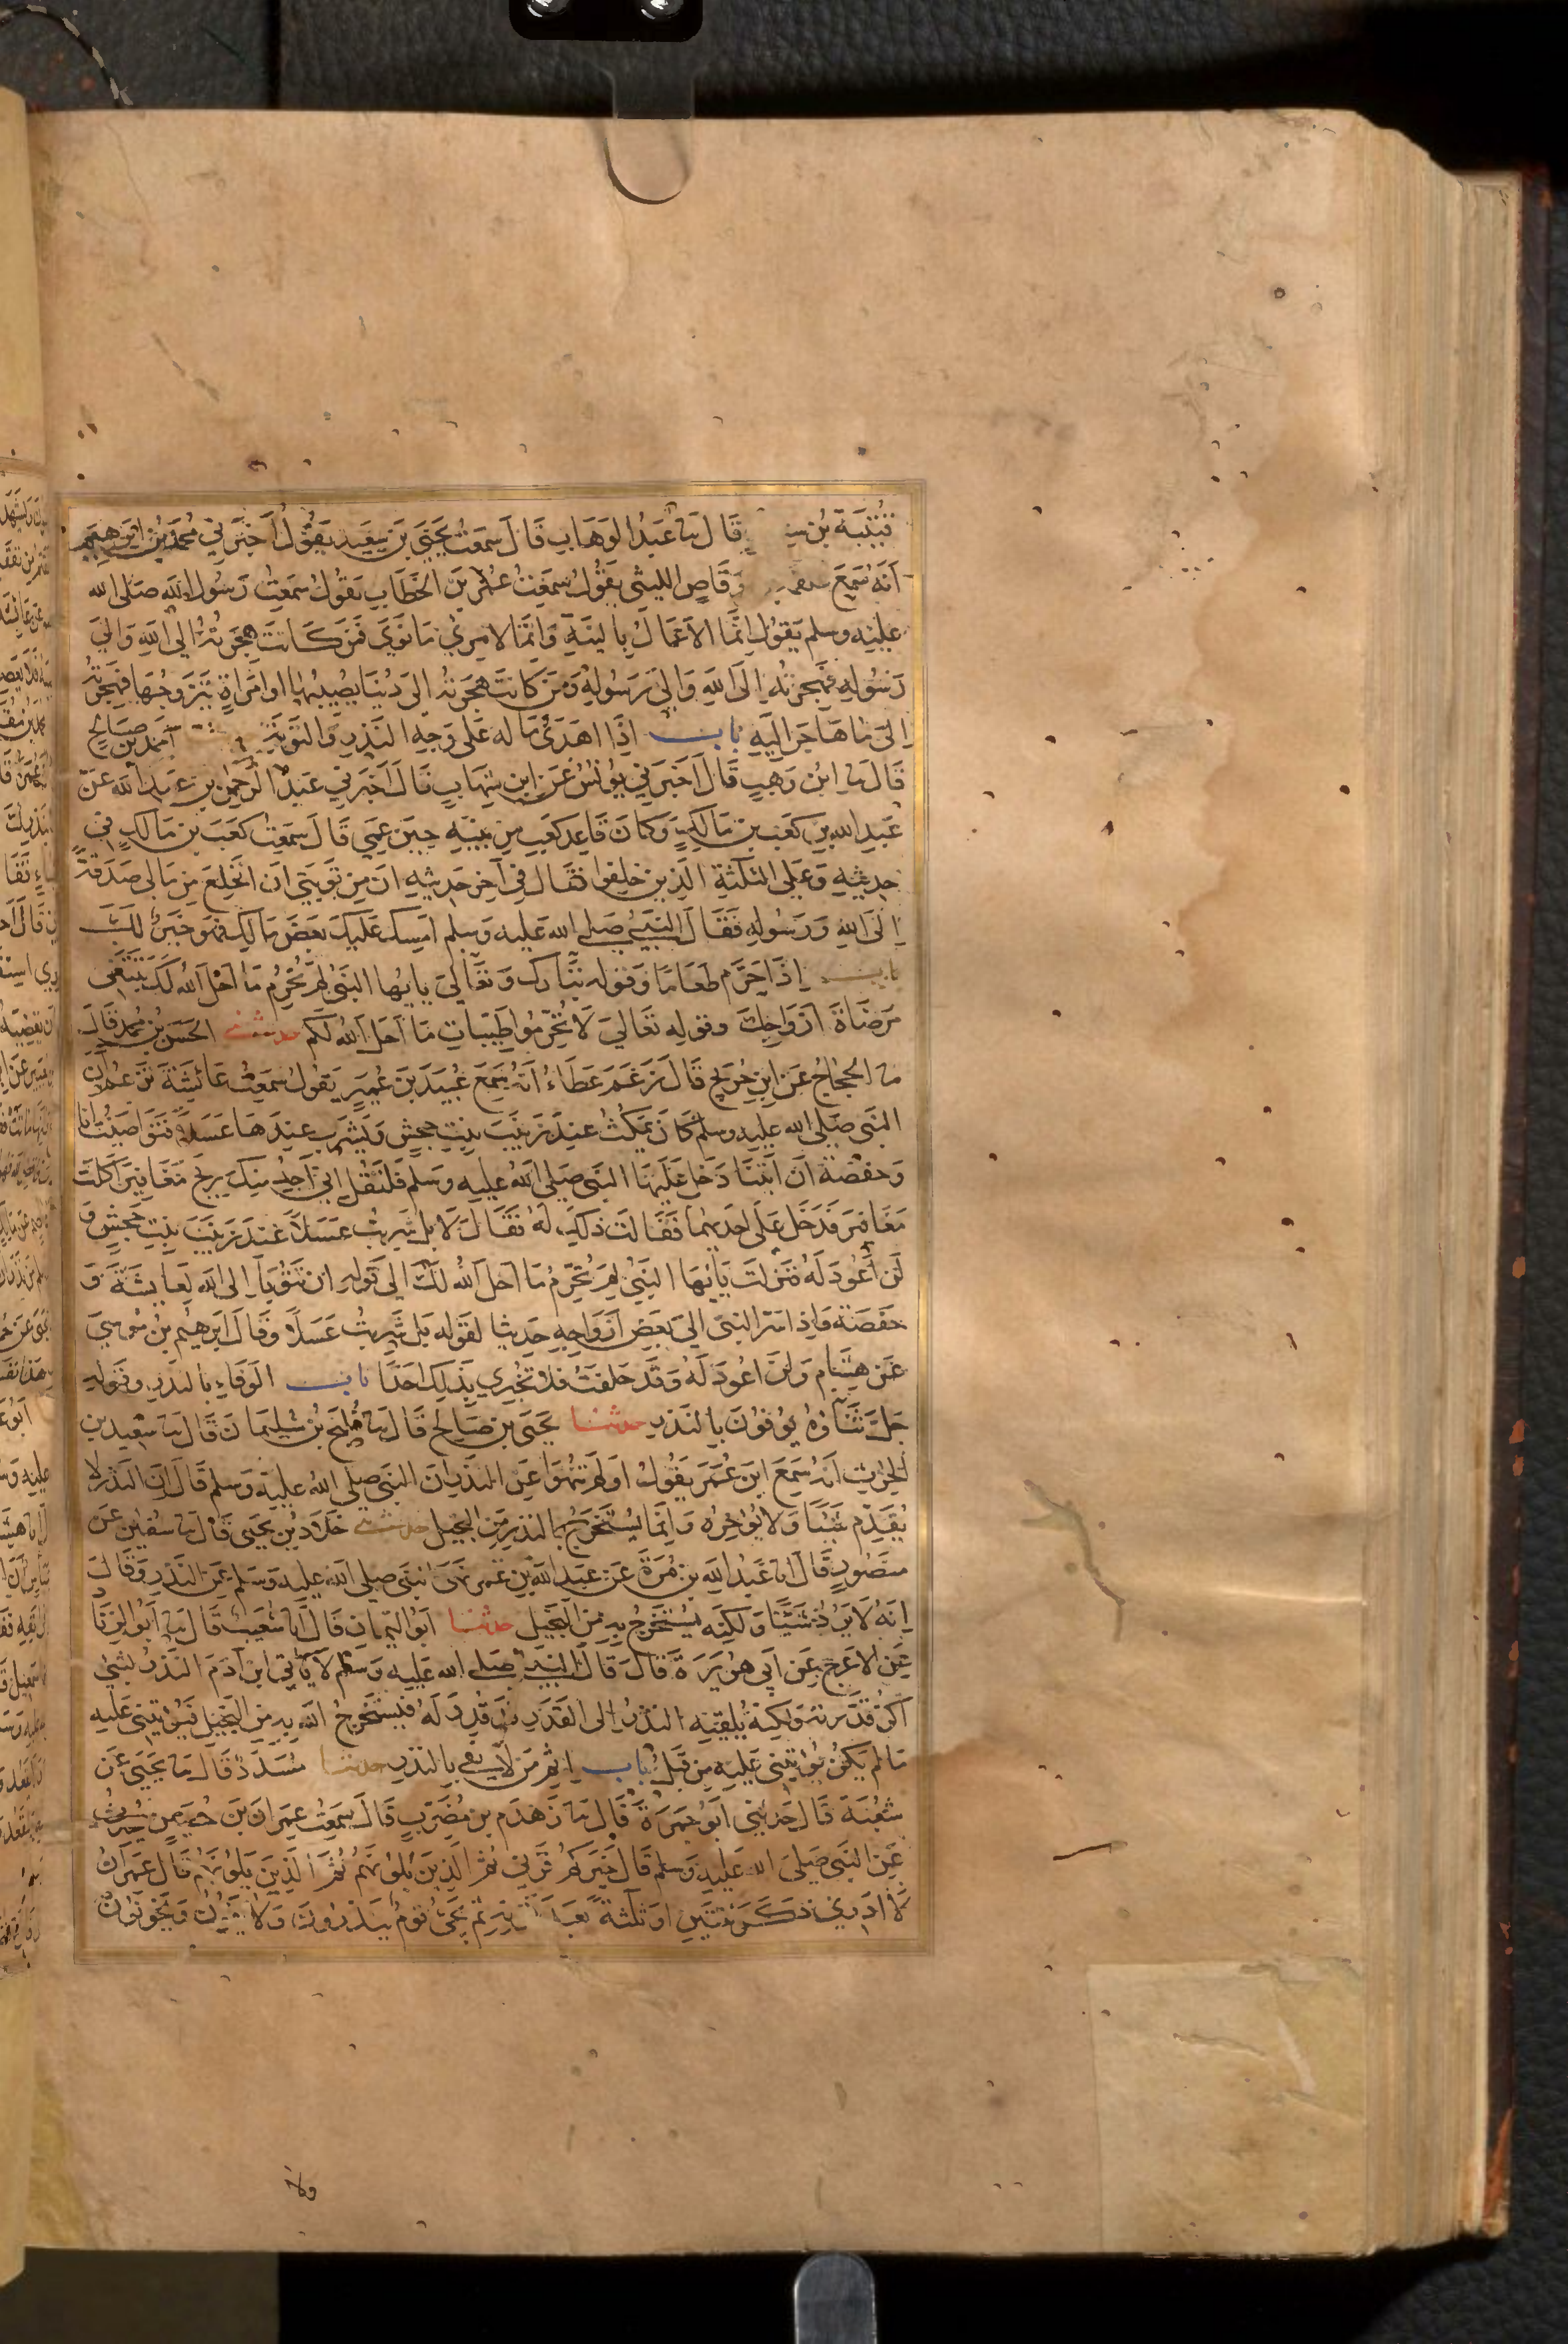 قُتَيْبَة بْن قَالَ ثنا عَبْدُ الوَهَابِ قَالَ سَمِعْتُ يَحْيَى بْنَ سَعِيد يَقُوْلُ أَخْبَرَنِي مُحَمَّدُ بْنُ ابْرَهِيمَ
أنَهُ سَمِعَ وَقَاصٍ الليثي يَقُوْلُ سَمِعْتُ عُمَر بْنَ الخَطَابِ يَقُولُ سَمِعْتُ رَسُولَ الله صَلى الله
عليه وسلم يَقوُل اِنَّمَا الاَعْمَالُ بالنيَةِ وَانَّمَا لامرئ مَا نَوَى فَمَنْ كَانَتْ هِجْرَتهُ اِلى اللهِ وَالىَ
رَسُولهِ فهِجرَتُه اِلَى اللهِ وَاِلىَ رَسُولِهِ وَمَنْ كَانَتْ هِجْرَتهُ الىَ دُنْيَا يُصيبُهَا اوامْرَاةٍ يَتَزَوجُهَا فهِجْرَتهُ
اِلىَ مَا هَاجَرَ الَيْهِ بَاب اِذَا اهْدَى مَاله عَلى وَجْهِ النَذرِ وَالتَوبَةِ احمد بن صَالحٍ
قَالَ ثنا ابْن وَهبٍ قَالَ اخبَرَني يوُنُسُ عَن ابن شِهَابٍ قَالَ اخبَرَني عَبْدُ الرَحْمنِ بن عَبدِ اللهِ عَنْ
عَبدِ الله بن كعب بن مَالِكٍ وَكانَ قَايد كَعبٍ مِن بَنِيهِ حِينَ عَمِيَ قَالَ سَمِعْتُ كَعَبَ بن مَالكٍ في
حديثهِ وَعَلى الثلثةِ الذِين خلفوا فَقَال في آخِر حَديثِهِ انَ مِن تَوبَتي ان انخلعَ مِن مَالي صَدَقَةً
اِلَى اللهِ وَرَسُولهِ فَقَالَ النَبيُّ صَلى الله عَليه وَسلم امْسِك عَلَيكَ بَعْضَ مَالِك فهوَ خَيرٌ لكَ
باب إِذَا حَرَّم طعَامًا وَقوله تبَارك وَتعَالىَ يايُها النَبيُ لِمَ تُحَرِمُ مَا احَل الله لكَ تَبْتَغي
مَرضَاةَ ازوَاجِكَ وقوله تعَاليَ لاَ تُحَرِّمُوا طَيّبَاتِ مَا اَحَل اللهُ لَكم حدثني الحَسَن بْن مُحمدٍ قَالَ
ثنا الحجّاج عَن ابنِ جُرَيجٍ قَالَ زَعَمَ عَطَاءُ انَهُ سَمِعَ عُبَيدَ بنَ عُمَيرٍ يَقولُ سَمِعْتُ عَائشَةَ تزعُم انَ
النَبيَ صَلى الله عليه وسلم كَانَ يَمكُثُ عِندَ زَينَبَ بِنتِ جحشٍ وَيَشرَبُ عِندَهَا عَسَلاً فتَواصَيْتُ انَا
وَحفصَةُ انَ ايتنا دَخلَ عَلَيهَا النَبي صَلى الله عليه وسلم فَلْتَقُل إني اَجِدُ مِنكَ رِيحَ مَغَافِيرَ اكلتَ
مَغَافيرَ فَدَخَل عَلَى احديهمَا فَقَالت ذلك لهُ فَقَالَ لاَ بل شَرِبتُ عَسَلاً عِندَ زَينَبَ بِنتِ جَحْشٍ وَ
لَن أَعُود لَهُ فنَزلَت يَايهَا النَبيُ لِمَ تحَرِّمُ مَا احَل اللهُ لكَ الى قَولهِ ان تَتُوبَا اِلى الله لِعَايشَةَ وَ
حَفصَةَ وَاِذ اسَرَّ النَبي الىَ بَعضِ ازوَاجِهِ حَديثا لقولهِ بَل شَرِبتُ عَسَلاً وَقَالَ ابرَهيم بن مُوسىَ
عَن هِشَامٍ وَلن اعُودَ لَهُ وَقَد حَلفتُ فلاَ تخبِري بذَلِكِ احَدًا بَاب الوَفَاءِ بالنذرِ وَقولهِ
جَلَّ ثنَاؤهُ يُوفُونَ بِالنَذرِ حدثنا يَحيَى بن صَالح قَالَ ثنا فُليحُ بنُ سُليمَانَ قَالَ ثنا سَعيد بن
الحرث اَنهُ سَمِعَ ابنَ عُمَرَ يَقوُلُ اوَلَم تُنهَوا عَن النَذرِ انَ النَبي صلى اللهُ عليهِ وسلم قَالَ ان النَذرَ لا
يُقَدِّم شَيئًا وَلا يُؤخِرُه وَاِنَّمَا يُستَخرَجُ بالنذرِ مِنَ البخيل حدثني خَلاّد بْن يَحيَى قَالَ ثنا سُفين عَن
مَنصُورٍ قَالَ انا عَبْدُ اللهِ بن مُرَةَ عَن عَبدِ اللهِ بن عمر نهَى النبَي صلى الله عليه وسلم عَن النَذرِ وَقَالَ
اِنهُ لاَ يَرُدُ شَيْئًا وَلَكِنَه يُستَخرَجُ بِهِ مِنَ البَخيلِ حدثنا ابَوُ اليَمان قَالَ انا شعَيبٌ قَالَ ثنا ابَوُ الزِنَادِ
عَن الاعَرج عَن اَبي هرَيرَةَ قَالَ قَالَ النَبيُّ صَلى الله عَليه وَسَلم لاَ يَاتي ابنَ آدَمَ النَذرُ بشيٍ
لَم اكن قدَّرتهُ وَلكِنهُ يُلقيهِ النذرُ الى القَدَرِ قدْ قُدّرَ لهُ فيَستَخرِجُ اللهُ بِهِ مِن البَخيل فيُؤتيني عَليهِ
مَا لم يَكن يُؤتيني عَليهِ مِن قَبلُ بَاب اِثمِ مَن لاَ يَفي بِالنَذرِ حدثنا مُسَدّدٌ قَالَ ثنا يَحيَى عَن
شعُبَةَ قَالَ حَدثَني ابَوُ جَمرَةَ قَالَ ثنا زَهدَم بن مُضَربٍ قَالَ سَمِعتُ عِمرَانَ بنَ حُصَينٍ يُحدّثُ
عَنِ النَبي صَلىَ الله عَليهِ وَسلم قَالَ خَيركم قَرني ثمَ الذينَ يلوُنهُم ثمَ الذِينَ يَلُونهُم قَالَ عِمرَانُ
لاَ ادْري ذكرَ ثِنتَينِ او ثلثةً بعدَ قرنهِ ثم يَجئُ قومٌ يَنذرُونَ وَلا يَفُونَ وَيَخُونونَ
ولا